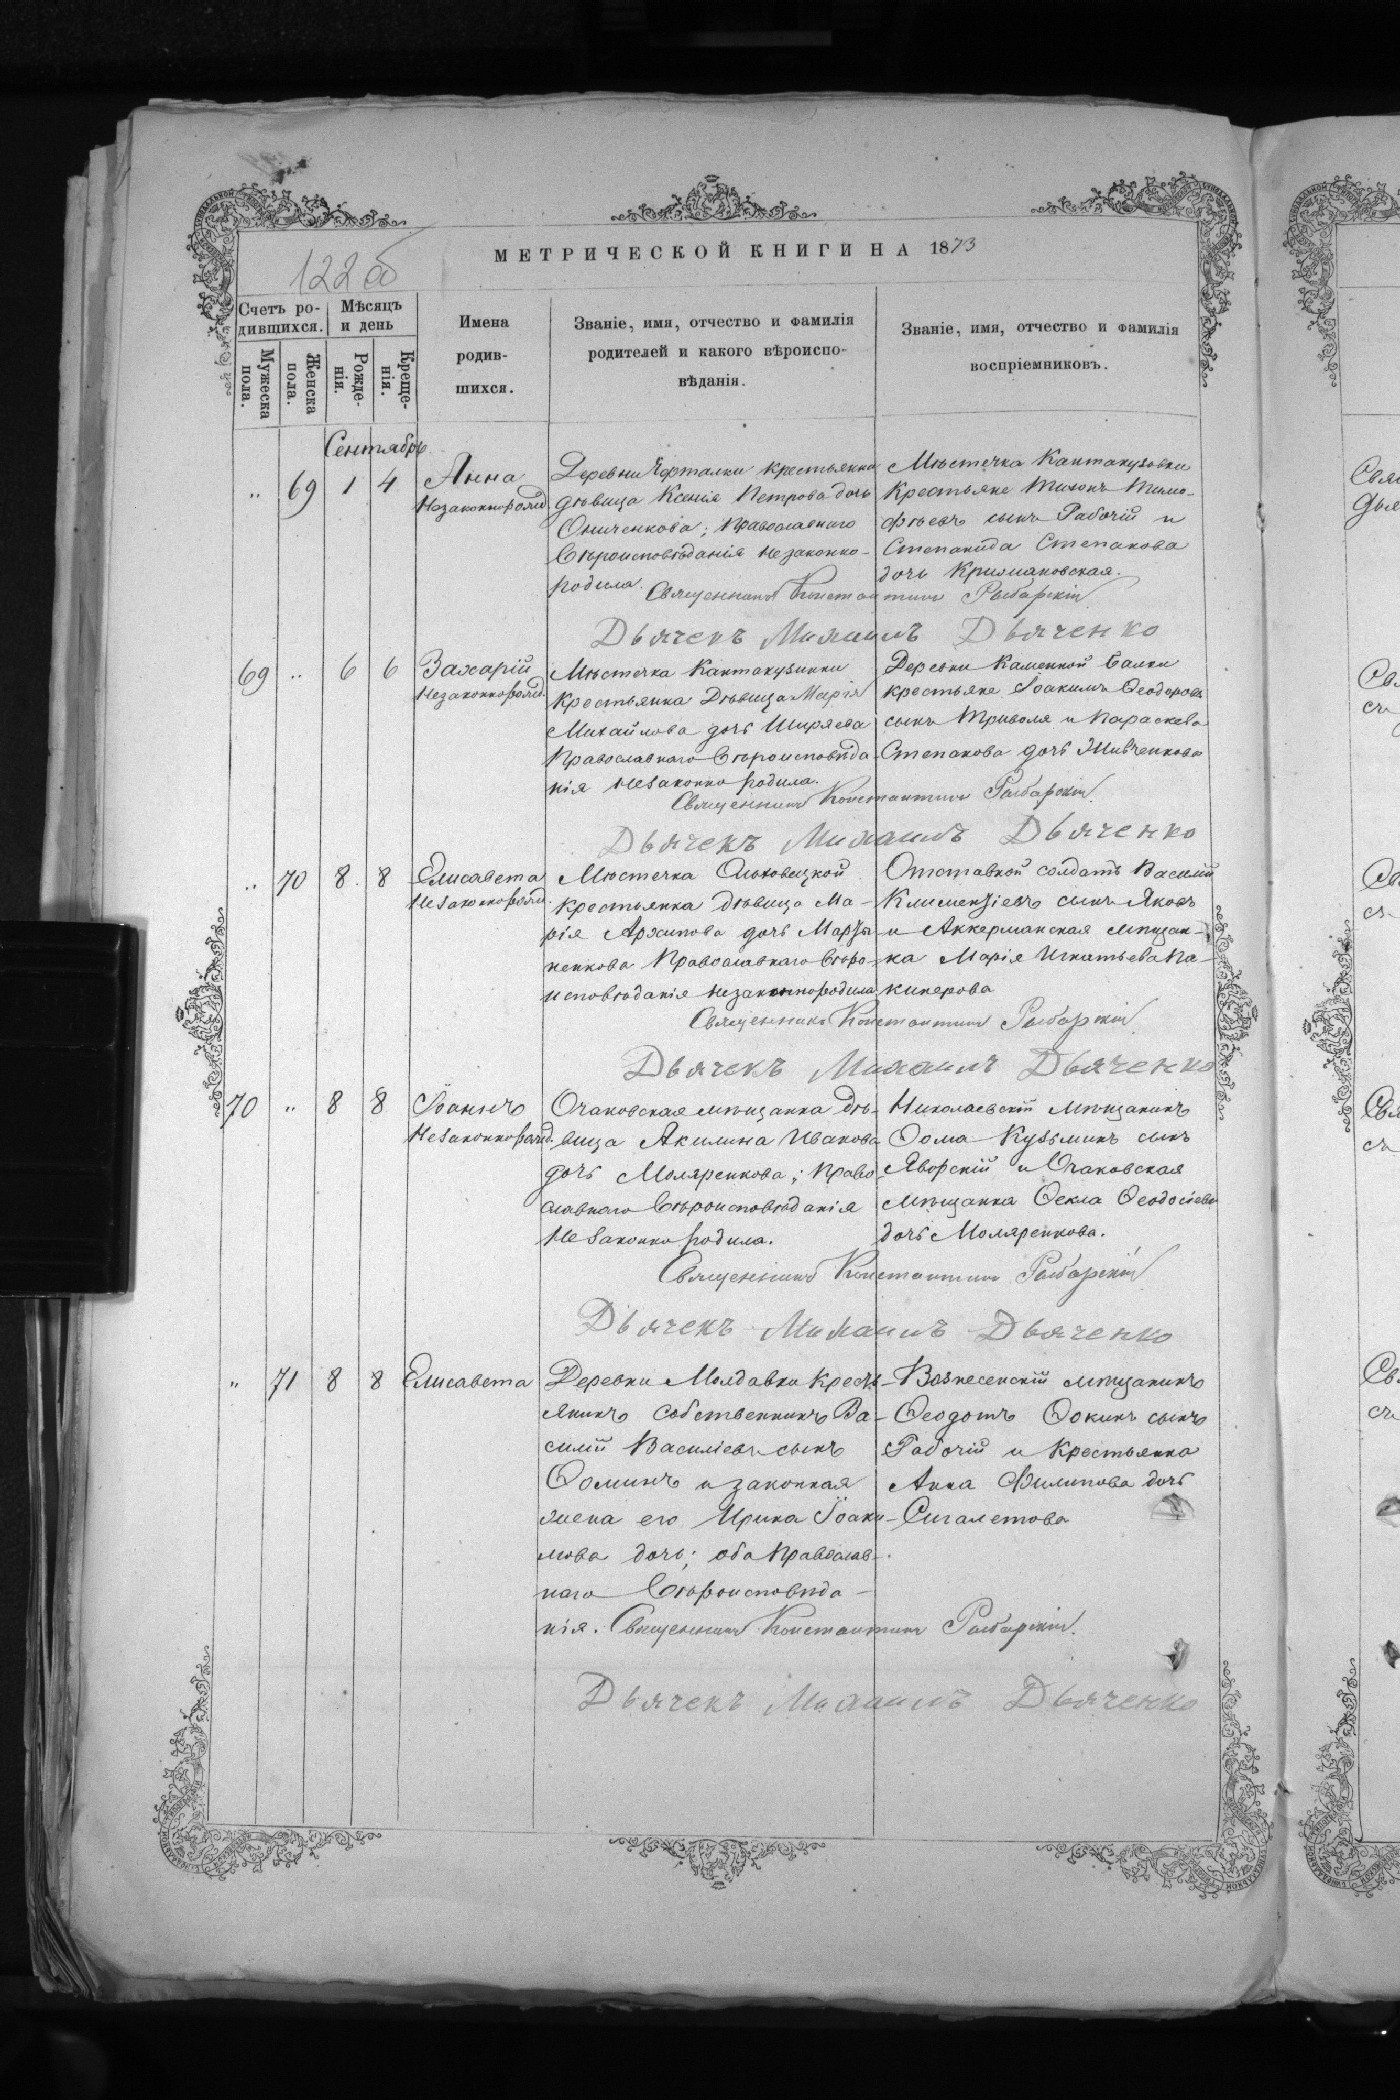 122 об
МЕТРИЧЕСКОЙ КНИГИ НА 1873
Счетъ ро-
дившихся.
Мѣсяцъ
и день
Мужеска
пола.
Женска
пола.
Рожде-
нія.
Креще-
нія.
Имена
родив-
шихся.
Званіе, имя, отчество и фамилія
родителей и какого вѣроиспо-
вѣданія.
Званіе, имя, отчество и фамилія
воспріемниковъ.
Сентябрь
„ 69 1 4
Анна
Незаконнорожд.
Деревни Ефталки крестьянка
дѣвица Ксенія Петрова дочь
Онитченкова; Православнаго
Вѣроисповѣданія незаконно-
родила.
Мѣстечка Кантакузовки
Крестьяне Тихонъ Тимо-
фѣевъ сынъ Рабочій и
Степанида Степанова
дочь Крижановская.
Священникъ Константинъ Рыбарскій
Дьячекъ Михаилъ Дьяченко
69 „ 6 6
Захарій
Незаконнорожд.
Мѣстечка Кантакузинки
Крестьянка Дѣвица Марія
Михайлова дочь Ширяева
Православнаго Вѣроисповѣда-
нія незаконно родила.
Деревни Каменной Балки
крестьяне Іоакимъ Ѳеодоровъ
сынъ Триволя и Параскева
Степанова дочь Живченкова
Священникъ Константинъ Рыбарскій
Дьячекъ Михаилъ Дьяченко
„ 70 8 8
Елисавета
Незаконнорожд.
Мѣстечка Ольховецкой
Крестьянка дѣвица Ма-
рія Архипова дочь Марты-
ненкова Православнаго Вѣро-
исповѣданія незаконнородила
Отставной солдатъ Василій
Климентіевъ сынъ Яковъ
и Аккерманская мѣщан-
ка Марія Игнатьева Ка-
кинерова
Священникъ Константинъ Рыбарскій
Дьячекъ Михаилъ Дьяченко
70 „ 8 8
Іоаннъ
Незаконнорожд.
Очаковская мѣщанка дѣ-
вица Акилина Иванова
дочь Моляренкова; Право-
славнаго Вѣроисповѣданія
Незаконно родила.
Николаевскій мѣщанинъ
Ѳома Кузьминъ сынъ
Яворскій и Очаковская
мѣщанка Ѳекла Ѳеодосіева
дочь Моляренкова.
Священникъ Константинъ Рыбарскій
Дьячекъ Михаилъ Дьяченко
„ 71 8 8
Елисавета
Деревни Молдавки Кресть-
янинъ собственникъ Ва-
силій Василіевъ сынъ
Ѳоминъ и законная
жена его Ирина Іоаки-
мова дочь; оба Православ-
наго Вѣроисповѣда-
нія.
Вознесенскій мѣщанинъ
Ѳеодотъ Ѳокинъ сынъ
Рабочій и Крестьянка
Анна Филипова дочь
Сигалетова
Священникъ Константинъ Рыбарскій.
Дьячекъ Михаилъ Дьяченко